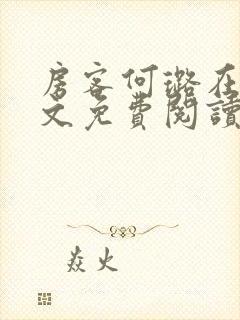 房客何璐在
文免費閱讀
焱火